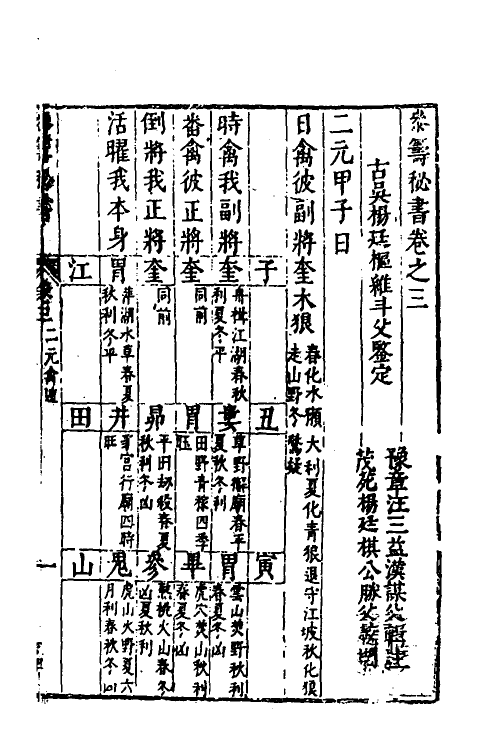 參籌秘書卷之三
古吳楊廷樞維斗父鑒定
豫章汪三益漢謀父輯註
茂苑楊廷棋公脉父
二元甲子日
日禽彼副將奎木狼 春化水 大利夏化青狼退守江坡秋化狼走山野冬驚疑
時禽我副將奎 舟楫江湖春秋利夏冬平
番禽彼正將奎 同前
倒將我正將奎 同前
活曜我本身胃 萍湖水草春夏秋利冬平
子
江
丑
婁 草野獬廟春平夏秋冬利
胃 田野青稼四季旺
昴 平田刼殺春夏秋利冬凶
井 哥宮行廟四時旺
田
寅
胃 雲山焚野秋利春夏冬凶
畢 虎穴焚山秋利春夏冬凶
參 熬桃火山春冬凶夏秋利
鬼 虎山火野夏六月利春秋冬凶
山
二元禽遁
一